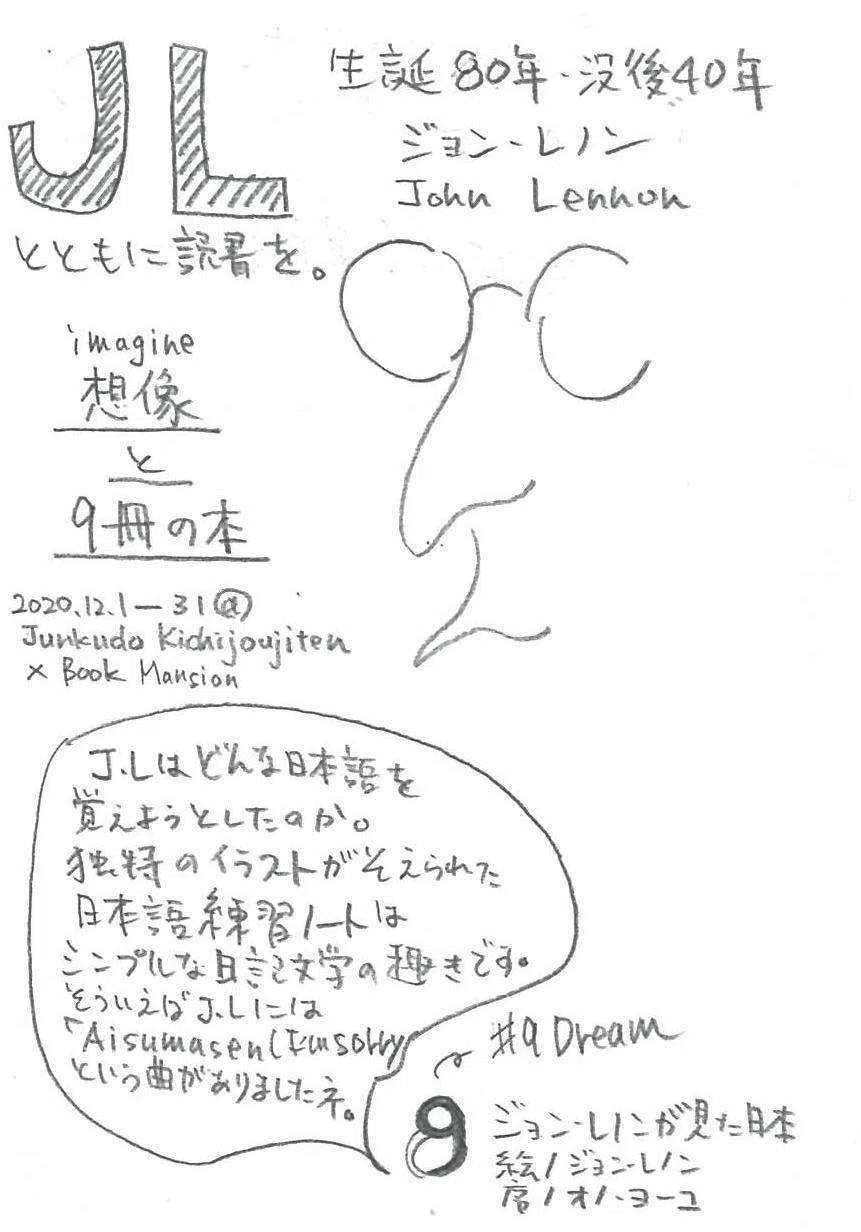 JL
生誕80年・没後40年
ジョン・レノン
John Lennon
とともに読書を。
imagine
想像
と
9冊の本
2020.12.1－31@
Junkudo Kichijoujiten
× Book Mansion
J.Lはどんな日本語を
覚えようとしたのか。
独特のイラストがそえられた
日本語練習ノートは
シンプルな日記文学の趣きです。
そういえばJ.Lには
「Aisumasen(I'm sorry
という曲がありましたネ。
#9 Dream
9
ジョン・レノンが見た日本
絵/ジョン・レノン
序/オノ・ヨーコ